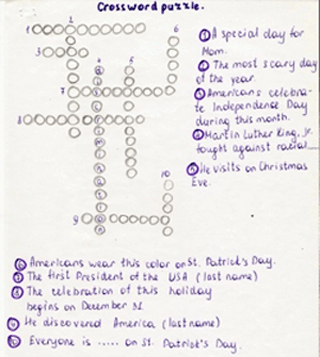 Crossword puzzle.
① A special day for
Mom.
② The most scary day
of the year.
③ Americans celebra-
te Independence Day
during this month.
④ Martin Luther King, Jr.
fought against racial.....
⑤ He visits on Christmas
Eve.
1
2
3
4
5
6
7
8
9
10
⑥ Americans wear this color on St. Patrick's Day.
⑦ The first President of the USA (last name)
⑧ The celebration of this holiday
begins on December 31.
⑨ He discovered America (last name)
⑩ Everyone is ..... on St. Patrick's Day.